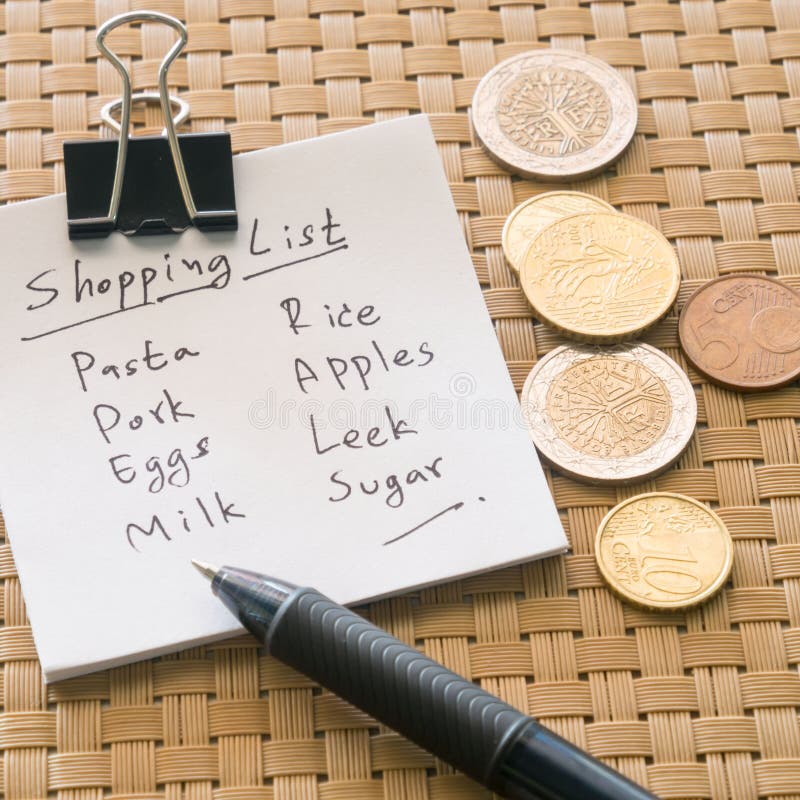 Shopping List
Pasta
Pork
Eggs
Milk
Rice
Apples
Leek
Sugar
5 CENT
10
EURO
CENT
FRATERNITÉ
dreamstime